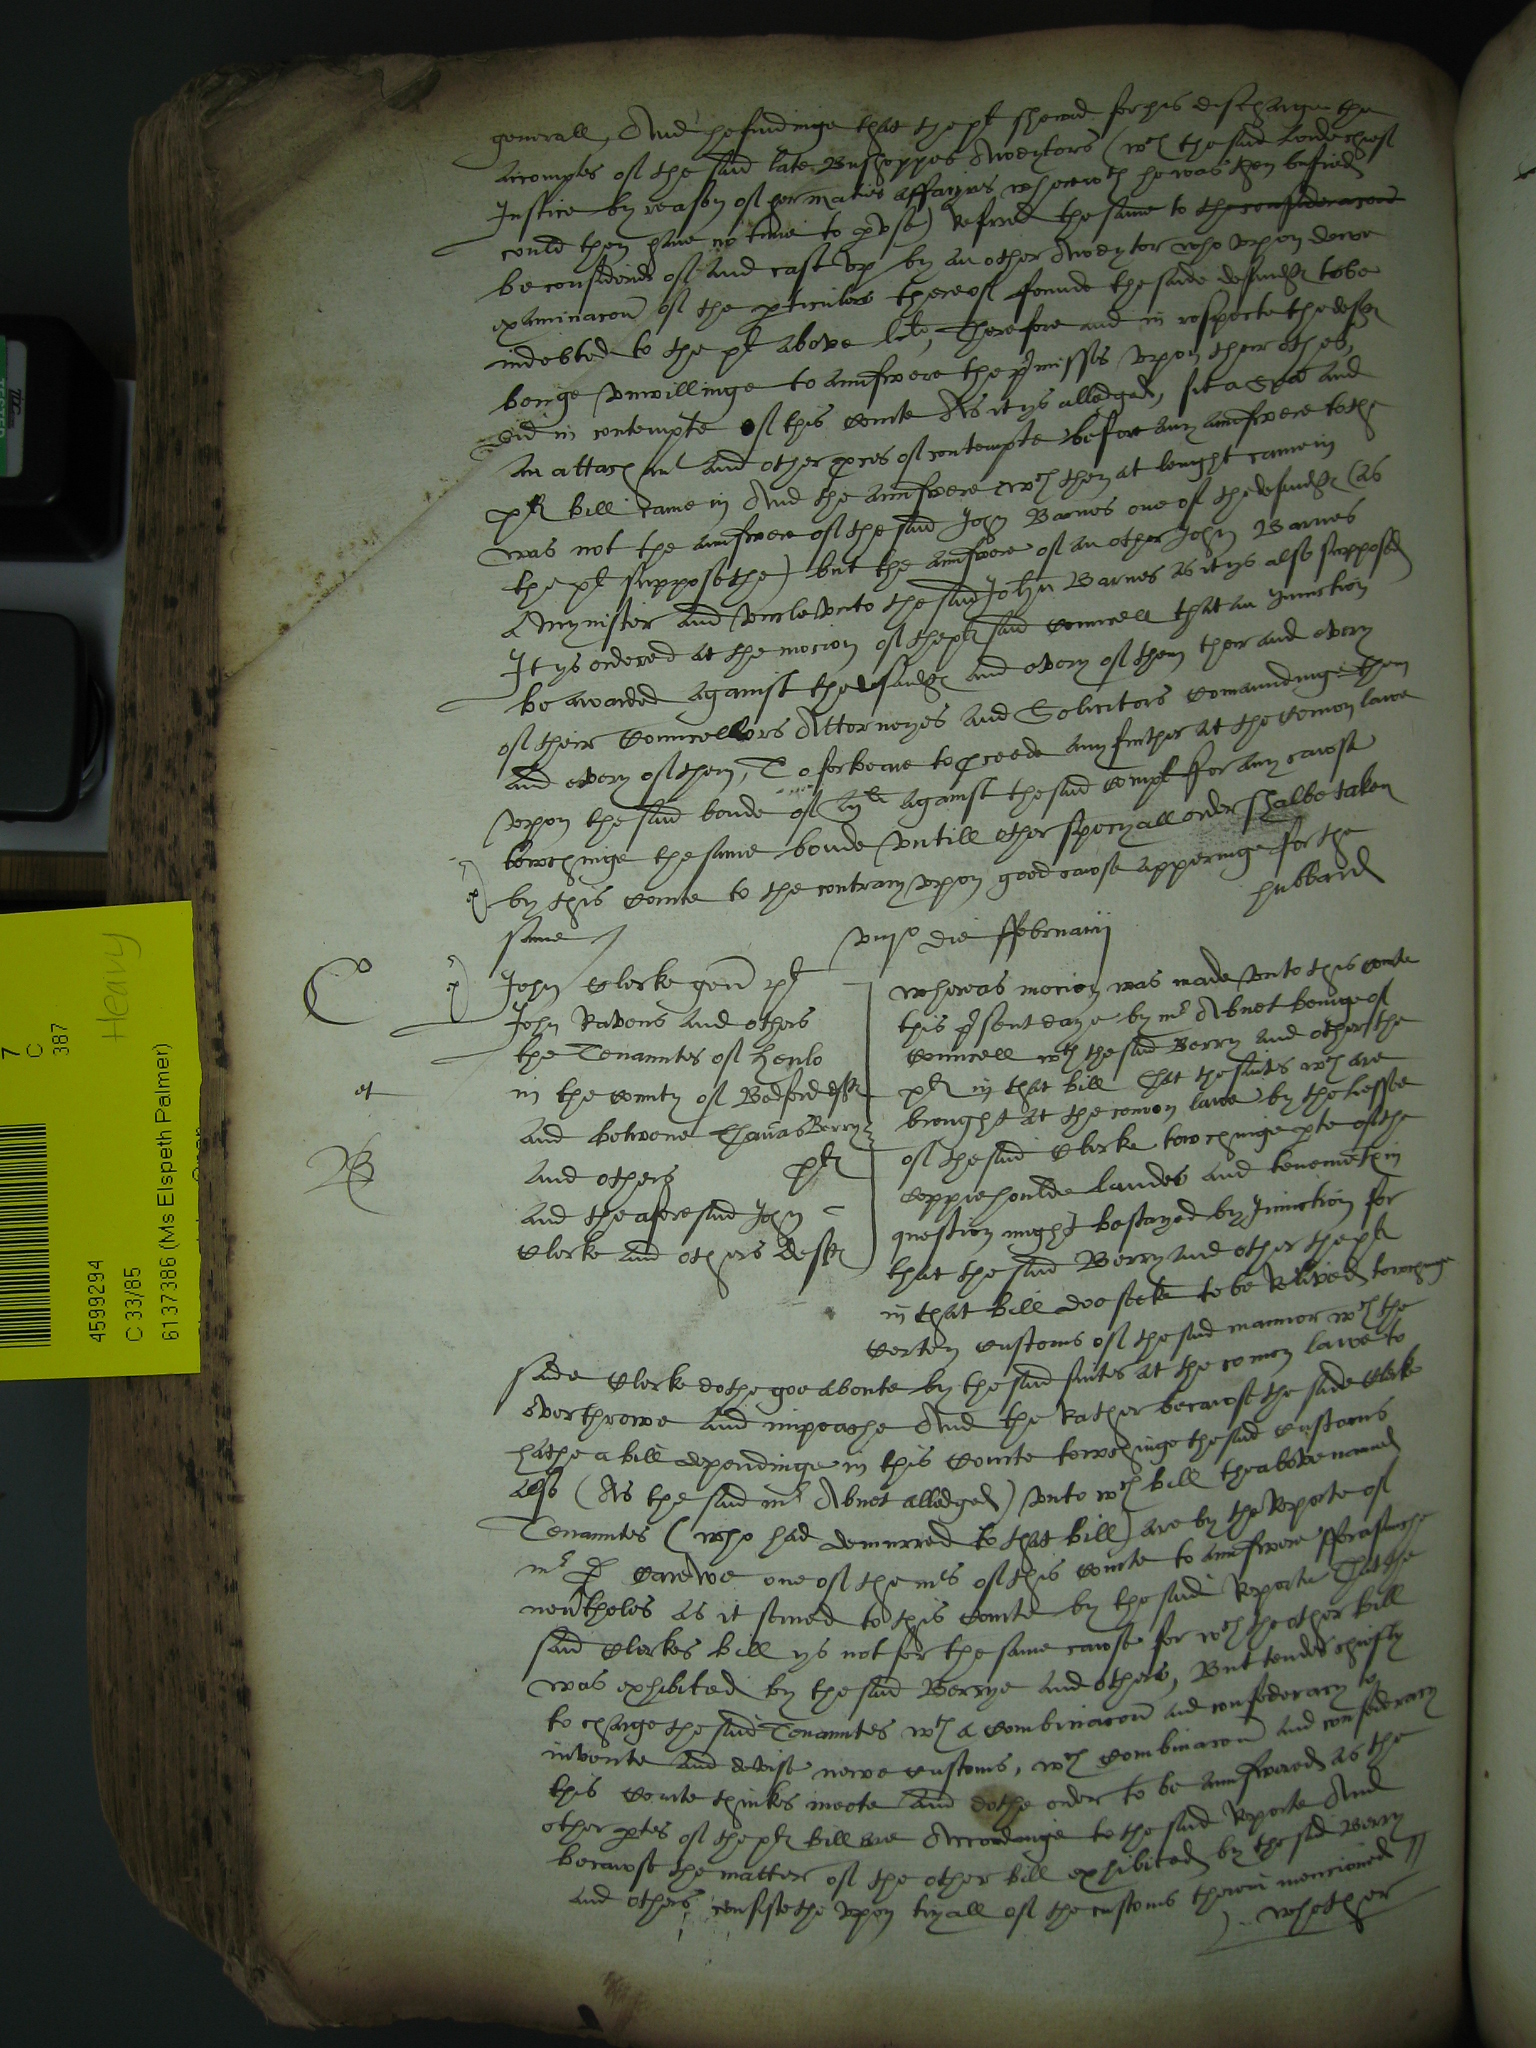 generall, And he findinge that the plt shewed for his discharge the
Accomptes of the said late Busshoppes Awdytors (wch the said Lorde chief
Justice by reason of her maties affayres wherewth he was then busied
could then have no time to pvse) referred the same to the consideracon
be considered of And cast vp by an other Awdytor who vpon dewe
examinacon of the pticulers thereof founde the saide defendtes to be
indebted to the plt above li, Therefore and in respecte the deftes
beinge vnwillinge to aunswere the pmisses vpon their othes,
did in contempte of this Courte As it ys alledged, sit a and
an attachmt and other pces of contempte before any aunswere to the
pltes bill came in And the aunswere wch then at lenght came in
was not the aunswere of the said John Barnes one of the defendtes (as
the plt supposethe) but the aunswere of an other John Barnes
a mynister and vncle vnto the said John Barnes as it ys also supposed
It ys ordered at the mocion of the pltes said Councell that an Iniunction
be awarded against the defendtes and every of them their and every
of their Councellors Attorneyes and Solicitors Comaundinge them
and every of them, To forbeare to pceede any further at the Comon lawe
vpon the said bonde of li against the said Complt for any cawse
towchinge the same bonde vntill other specyall order shalbe taken
by this Courte to the contrary vpon good cawse apperinge for the
same
hubbard
vnpo die ffebruarij
John Clerke gen plt
John Ravens and others
the Tenauntes of Henlo
in the County of Bedford deftes
et
And betwene Thomas Berry
and others pltes
And the aforesaid John
Clerke and others deftes
Whereas mocion was made vnto this Courte
this psent daye by mr Abnot beinge of
Councell wth the said Berry and other the
pltes in that bill That the suites wch are
brought at the comon lawe by the Lessee
of the said Clerke towchinge pte of the
Coppiehoulde landes and tenemtes in
question might be stayed by Iniunction for
that the said Berry and other the pltes
in that bill doe seeke to be relived towchinge
Certen Customs of the said mannor wch the
saide Clerke dothe goe aboute by the said suites at the comon lawe to
overthrowe and impeache And the rather becawse the saide Clerke
hathe a bill dependinge in this Courte towchinge the said Customs
also (As the said mr Abnot alledged) vnto wch bill the above named
Tenauntes (who had demurred to that bill) are by the Reporte of
mr D Carewe one of the mrs of this Courte to aunswere fforasmuche
nevtheles as it semed to this Courte by the said Reporte That the
said Clerkes bill ys not for the same cawse for wch the other bill
was exhibited by the said Berrye and others, But tendes chiefly
to charge the said Tenauntes wth a Combinacon and confederacy to
invente and devise newe Customs, wch Combinacon and confederacy
this Courte thinkes meete and dothe order to be aunswered as the
other ptes of the pltes bill are Accordinge to the said Reporte And
becawse the matter of the other bill exhibited by the said Berry
and others consistethe vpon tryall of the customs therein mencioned
whether
7
C
387
Heavy
4599294
C 33/85
6137386 (Ms Elspeth Palmer)